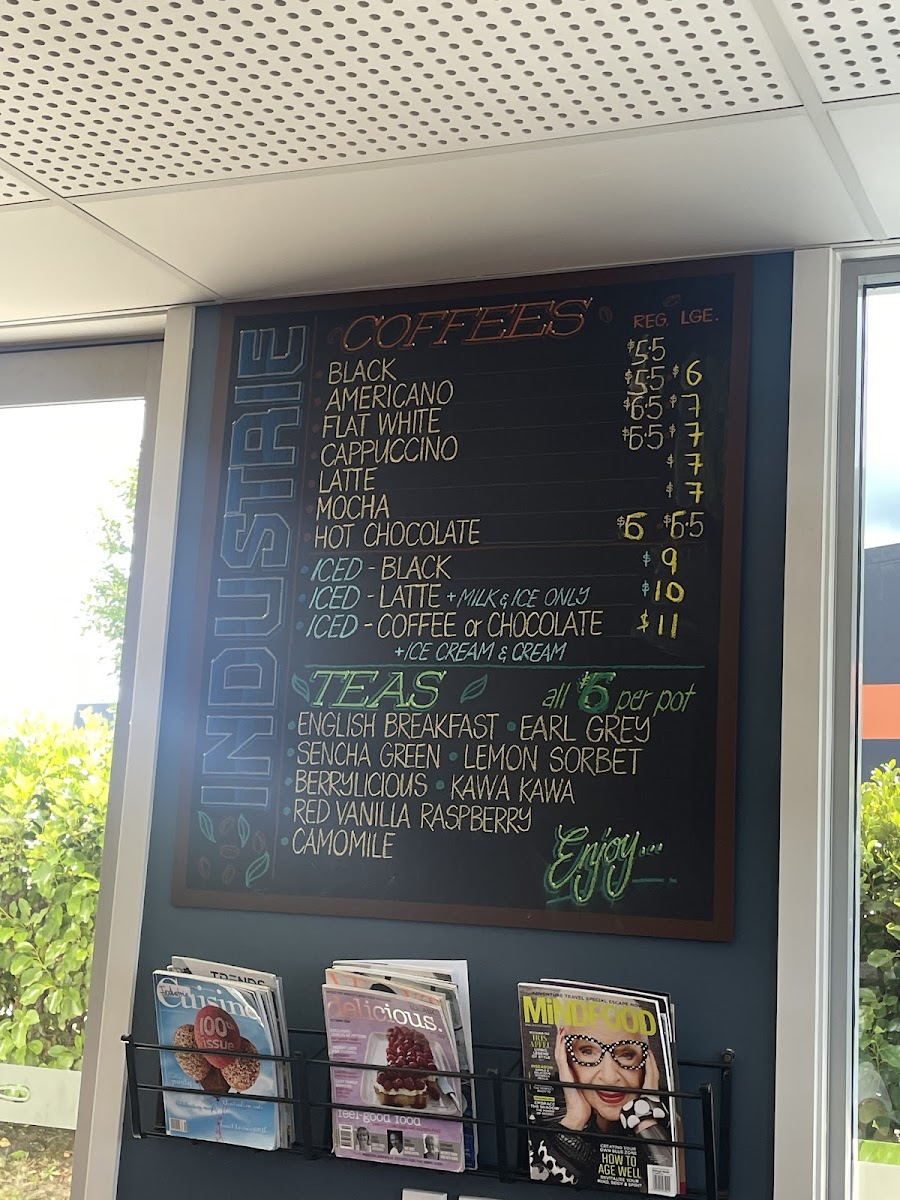 INDUSTRIE
COFFEES REG. LGE.
• BLACK $5.5
• AMERICANO $5.5 $6
• FLAT WHITE $6.5 $7
• CAPPUCCINO $6.5 $7
• LATTE $7
• MOCHA $7
• HOT CHOCOLATE $6 $6.5
• ICED - BLACK $9
• ICED - LATTE + MILK & ICE ONLY $10
• ICED - COFFEE or CHOCOLATE $11
+ ICE CREAM & CREAM
TEAS all $6 per pot
• ENGLISH BREAKFAST • EARL GREY
• SENCHA GREEN • LEMON SORBET
• BERRYLICIOUS • KAWA KAWA
• RED VANILLA RASPBERRY
• CAMOMILE
Enjoy...
TRENDS
Cuisine
100th
issue
delicious.
feel-good food
ADVENTURE TRAVEL SPECIAL
MiNDFOOD
IRIS
APFEL
CREATING YOUR
OWN BLUE ZONE
HOW TO
AGE WELL
REVITALISE YOUR
MIND, BODY & SPIRIT